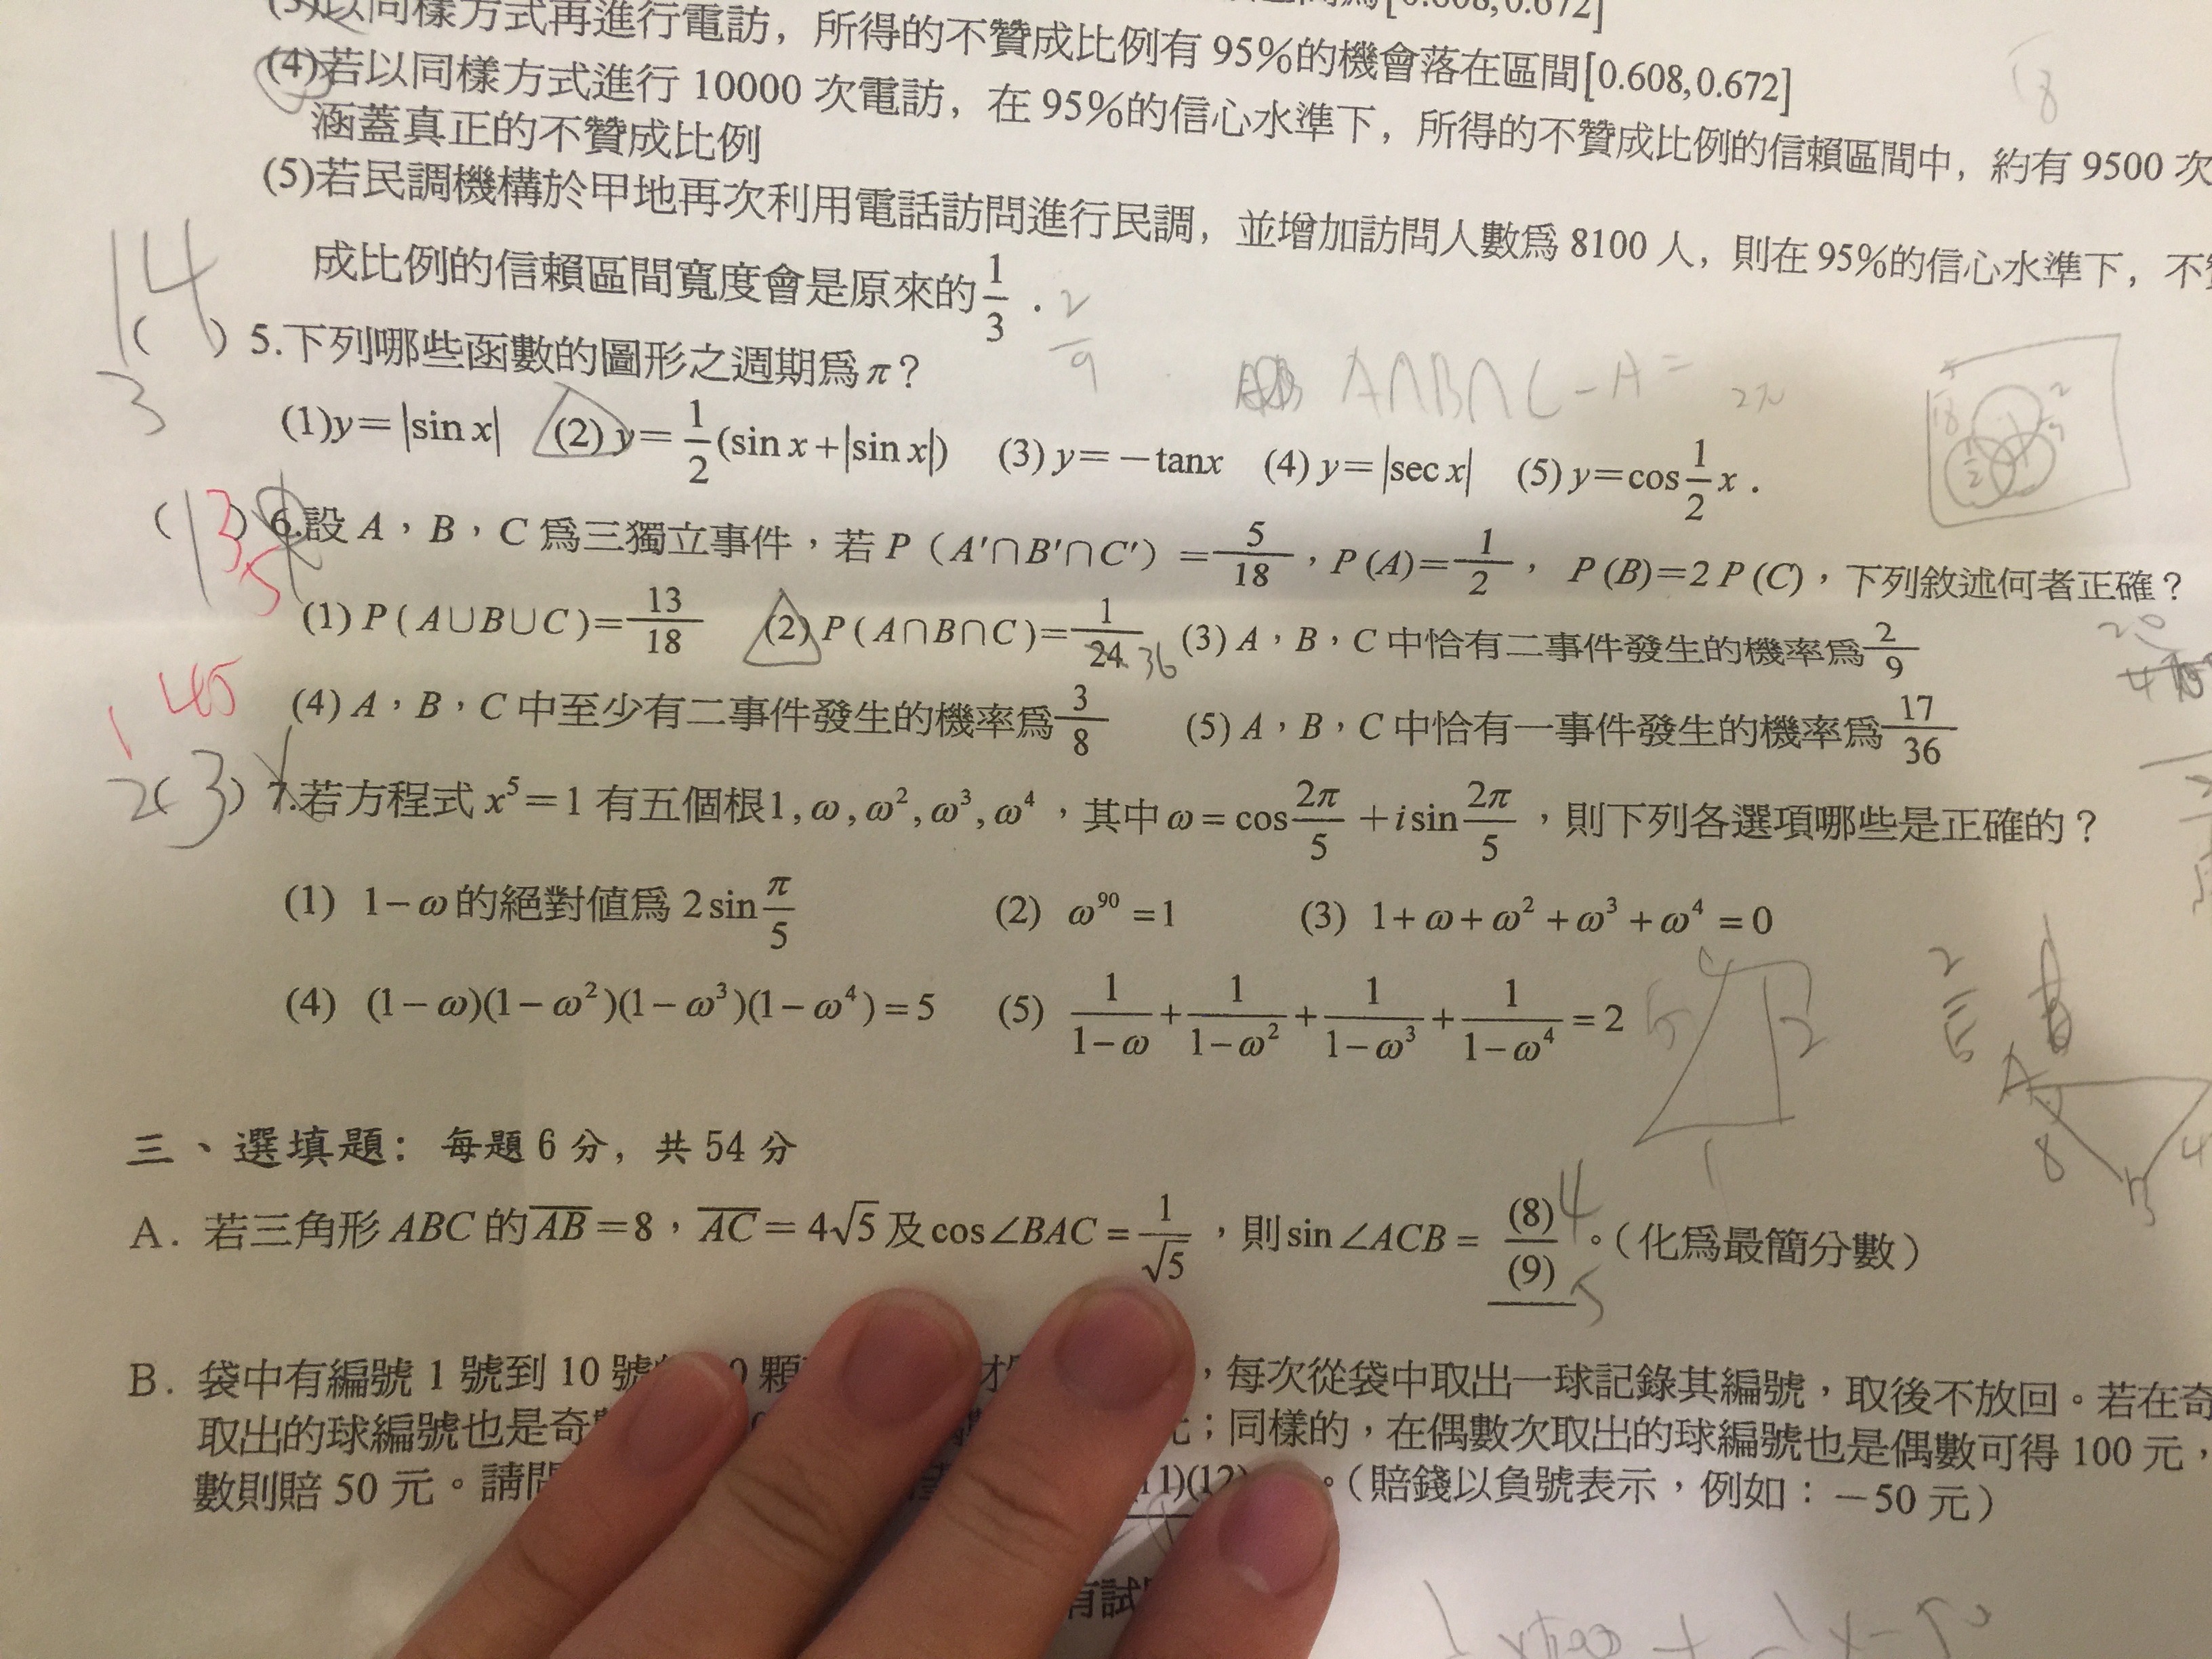 (3)以同樣方式再進行電訪，所得的不贊成比例有 95%的機會落在區間[0.608,0.672]
(4)若以同樣方式進行 10000 次電訪，在 95%的信心水準下，所得的不贊成比例的信賴區間中，約有 9500 次
涵蓋真正的不贊成比例
(5)若民調機構於甲地再次利用電話訪問進行民調，並增加訪問人數為 8100 人，則在 95%的信心水準下，不
成比例的信賴區間寬度會是原來的 1/3 .
2/9
14
3
( ) 5.下列哪些函數的圖形之週期為π？
A∩B∩C - A =
(1)y=|sin x| (2) y= 1/2 (sin x+|sin x|) (3) y=-tanx (4) y=|sec x| (5) y=cos 1/2 x .
( 13 5 ) 6.設 A，B，C 為三獨立事件，若 P（A′∩B′∩C′）= 5/18，P (A)= 1/2， P (B)=2 P (C)，下列敘述何者正確？
(1) P ( A∪B∪C )= 13/18 (2) P ( A∩B∩C )= 1/24 36 (3) A，B，C 中恰有二事件發生的機率為 2/9
(4) A，B，C 中至少有二事件發生的機率為 3/8 (5) A，B，C 中恰有一事件發生的機率為 17/36
1 45
2( 3 ) 7.若方程式 x⁵=1 有五個根1, ω, ω², ω³, ω⁴，其中ω = cos 2π/5 + i sin 2π/5，則下列各選項哪些是正確的？
(1) 1-ω的絕對值為 2 sin π/5 (2) ω⁹⁰ =1 (3) 1+ω+ω²+ω³+ω⁴ = 0
(4) (1-ω)(1-ω²)(1-ω³)(1-ω⁴) = 5 (5) 1/(1-ω) + 1/(1-ω²) + 1/(1-ω³) + 1/(1-ω⁴) = 2
三、選填題：每題 6 分，共 54 分
A. 若三角形 ABC 的 AB = 8，AC = 4√5 及 cos∠BAC = 1/√5，則 sin∠ACB = (8)/(9) 4 5。（化為最簡分數）
B. 袋中有編號 1 號到 10 號 0 顆 ，每次從袋中取出一球記錄其編號，取後不放回。若在奇
取出的球編號也是奇 ；同樣的，在偶數次取出的球編號也是偶數可得 100 元，
數則賠 50 元。請問 1)(12) 。（賠錢以負號表示，例如：－50 元）
有試